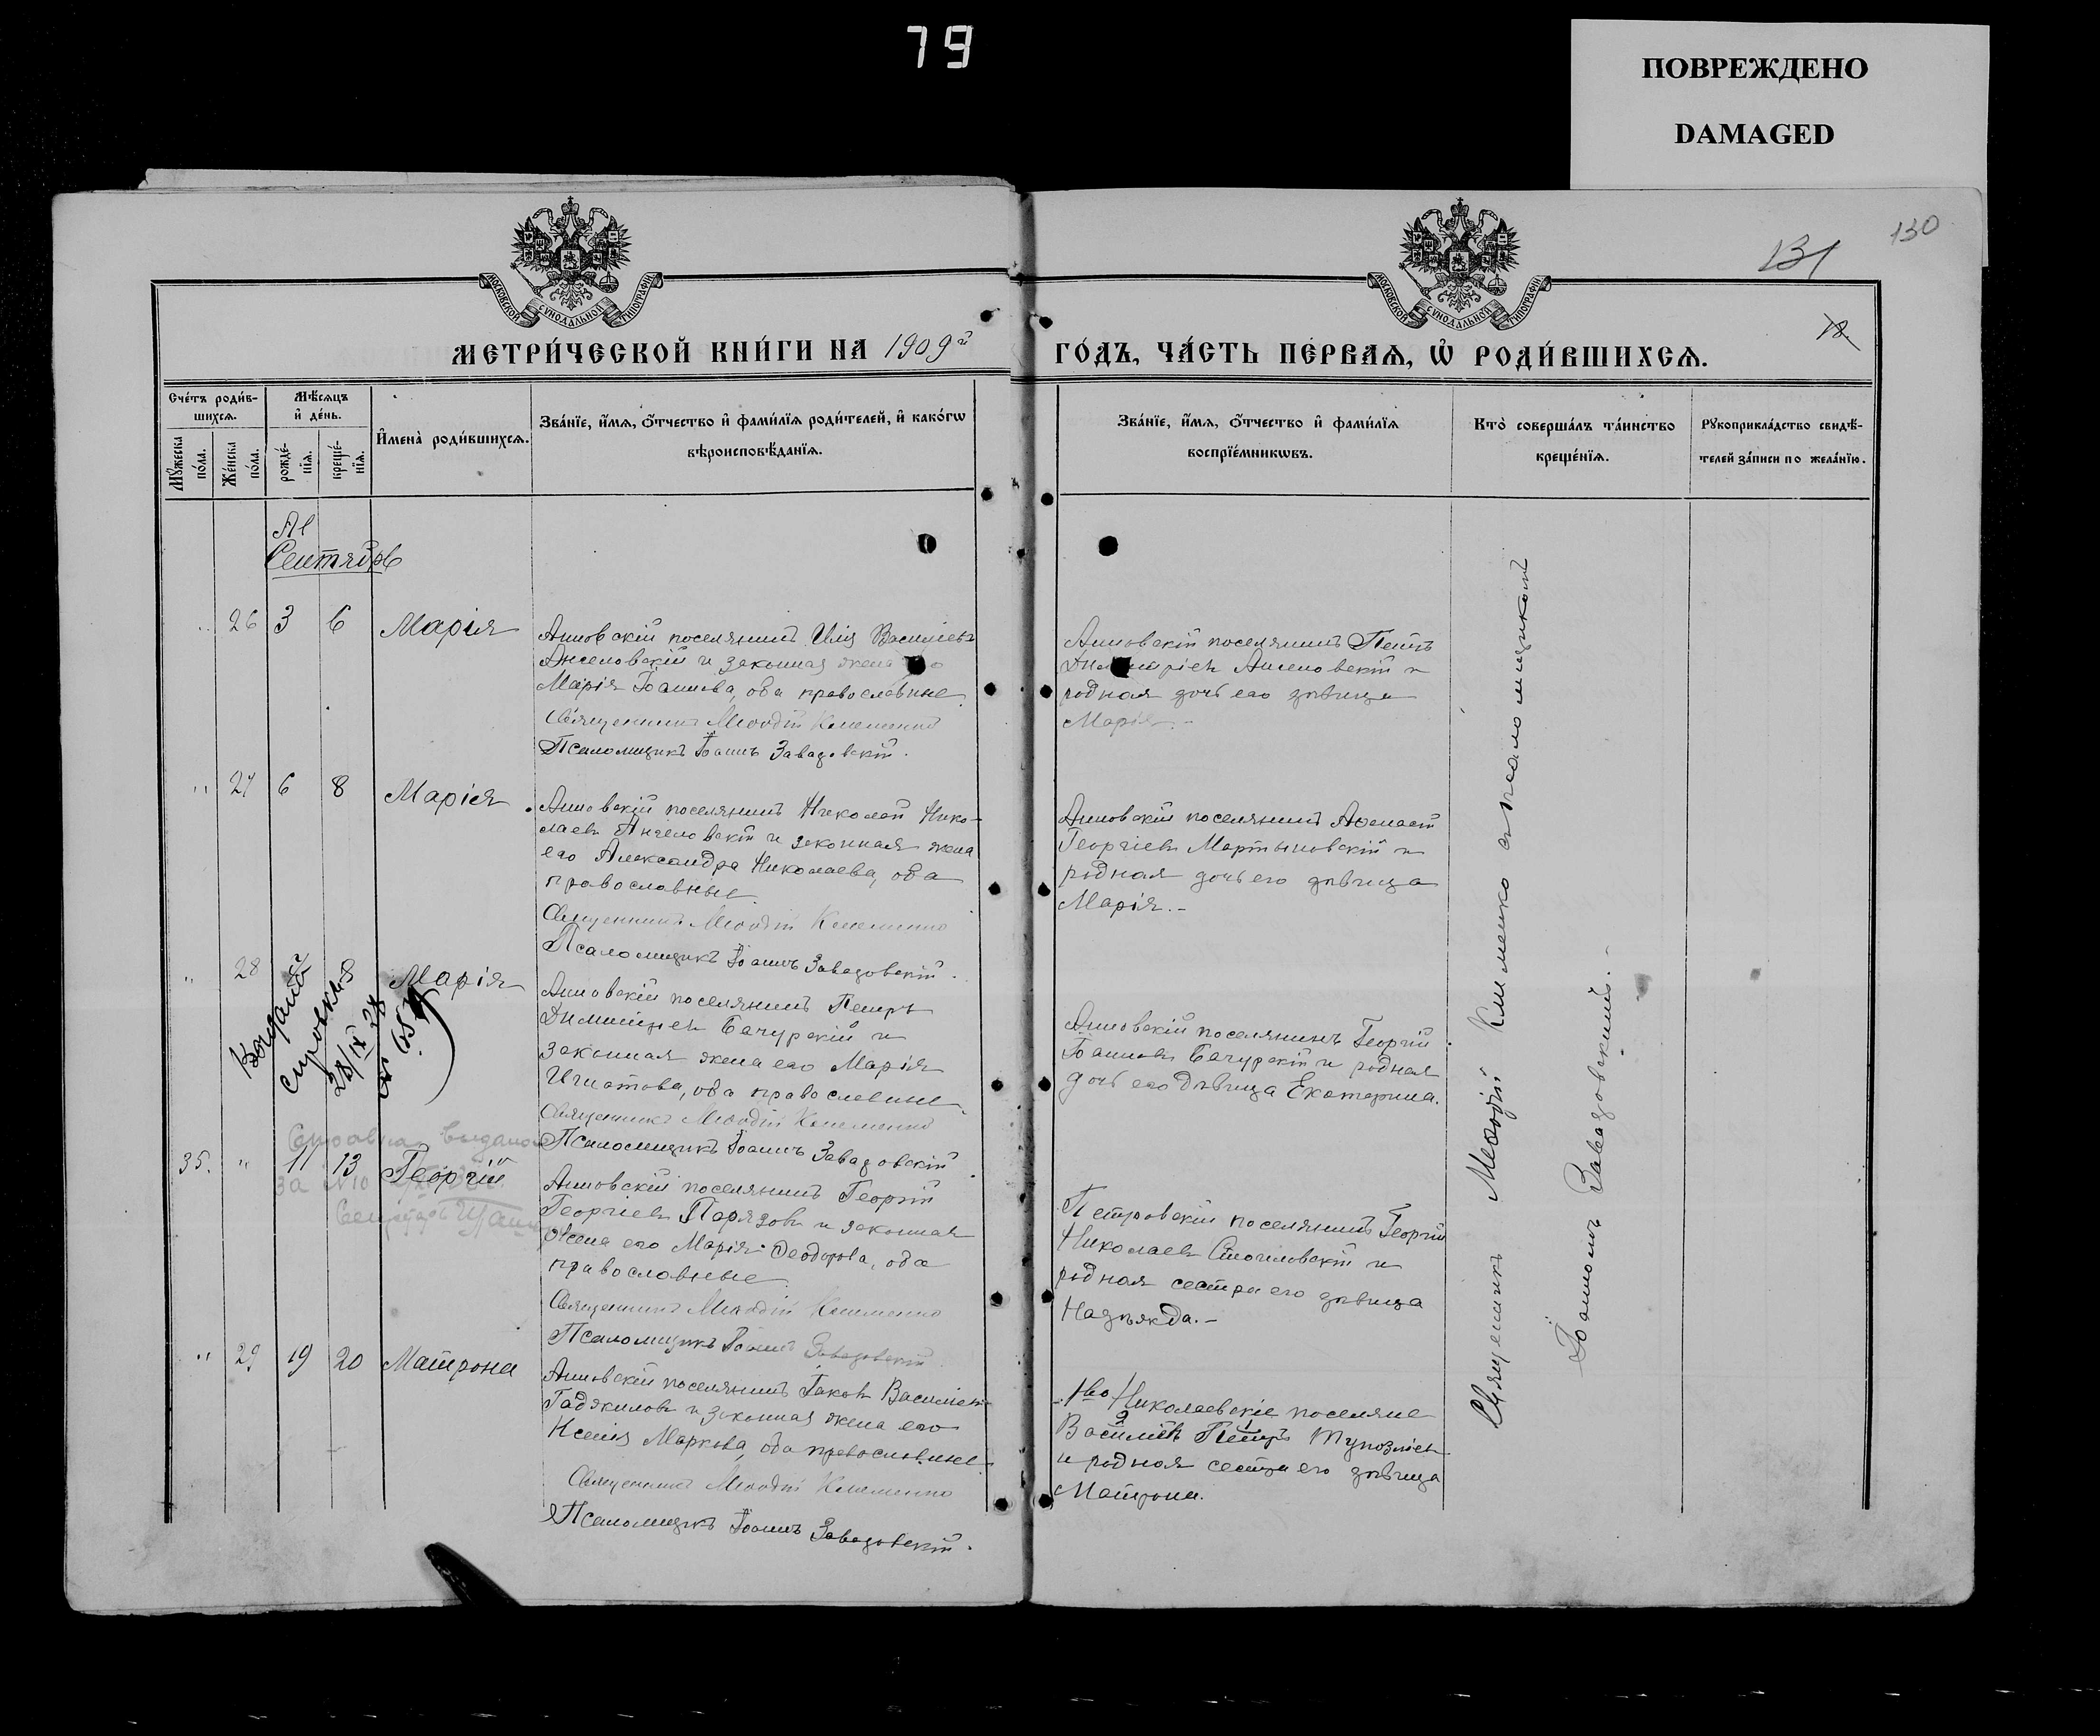 79
ПОВРЕЖДЕНО
DAMAGED
130
131
18
МОСКОВСКОЙ СѴНОДАЛЬНОЙ ТИПОГРАФІИ
МОСКОВСКОЙ СѴНОДАЛЬНОЙ ТИПОГРАФІИ
МЕТРИ́ЧЕСКОЙ КНИ́ГИ НА 1909й
ГО́ДЪ, ЧА́СТЬ ПЕ́РВАѦ, Ѡ҆ РОДИ́ВШИХСѦ.
Сче́тъ роди́в-
шихсѧ.
Мꙋ́жеска
по́ла.
Же́нска
по́ла.
Мѣ́сѧцъ
и҆ де́нь.
рожде́-
нїѧ.
креще́-
нїѧ.
И҆мена̀ роди́вшихсѧ.
Зва́нїе, и҆́мѧ, ѻ҆́тчество и҆ фами́лїѧ роди́телей, и҆ како́гѡ
вѣроисповѣ́данїѧ.
Зва́нїе, и҆́мѧ, ѻ҆́тчество и҆ фами́лїѧ
воспрїе́мникѡвъ.
Кто̀ соверша́лъ та́инство
креще́нїѧ.
Рꙋкоприкла́дство свидѣ́-
телей за́писи по жела́нїю.
Сентябрь
26 3 6 Марія
Анновскій поселянинъ Илія Васильевъ
Ангеловскій и законная жена его
Марія Іоаннова, оба православные.
Священникъ Меѳодій Клименко
Псаломщикъ Іоаннъ Завадовскій.
Анновскій поселянинъ Петръ
Димитріевъ Ангеловскій и
родная дочь его дѣвица
Марія.-
" 27 6 8 Марія
Анновскій поселянинъ Николай Нико-
лаевъ Ангеловскій и законная жена
его Александра Николаева, оба
православные.
Священникъ Меѳодій Клименко
Псаломщикъ Іоаннъ Завадовскій.
Анновскій поселянинъ Аѳанасій
Георгіевъ Мартыновскій и
родная дочь его дѣвица
Марія.-
" 28 8 Марія
Анновскій поселянинъ Петръ
Димитріевъ Бачурскій и
законная жена его Марія
Игнатова, оба православные.
Священникъ Меѳодій Клименко
Псаломщикъ Іоаннъ Завадовскій.
28/IX 28
Анновскій поселянинъ Георгій
Іоанновъ Бачурскій и родная
дочь его дѣвица Екатерина.
Справка выдана
за №10
35. " 11 13 Георгій
Анновскій поселянинъ Георгій
Георгіевъ Парязовъ и законная
жена его Марія Ѳеодорова, оба
православные.
Священникъ Меѳодій Клименко
Псаломщикъ Іоаннъ Завадовскій
Петровскій поселянинъ Георгій
Николаевъ Стоиловскій и
родная сестра его дѣвица
Надѣжда.-
" 29 19 20 Матрона
Анновскій поселянинъ Іаковъ Васильевъ
Гаджиловъ и законная жена его
Ксенія Маркова, оба православные.
Священникъ Меѳодій Клименко
Псаломщикъ Іоаннъ Завадовскій.
Николаевскіе поселяне
Василіевъ Петръ
и родная сестра его дѣвица
Матрона.
Священникъ Меѳодій Клименко съ псаломщикомъ
Іоанномъ Завадовскимъ.-